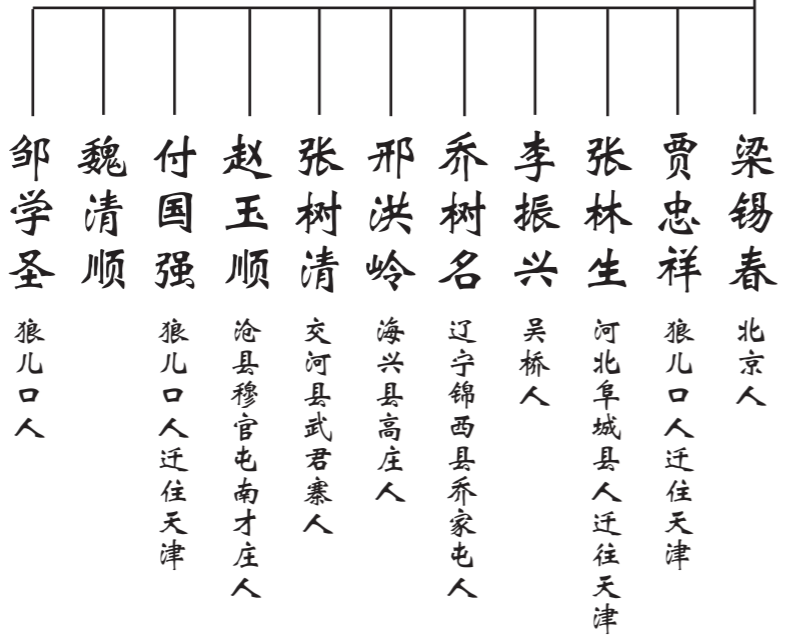 梁锡春 北京人
贾忠祥 狼儿口人迁住天津
张林生 河北阜城县人迁往天津
李振兴 吴桥人
乔树名 辽宁锦西县乔家屯人
邢洪岭 海兴县高庄人
张树清 交河县武君寨人
赵玉顺 沧县穆官屯南才庄人
付国强 狼儿口人迁住天津
魏清顺
邹学圣 狼儿口人